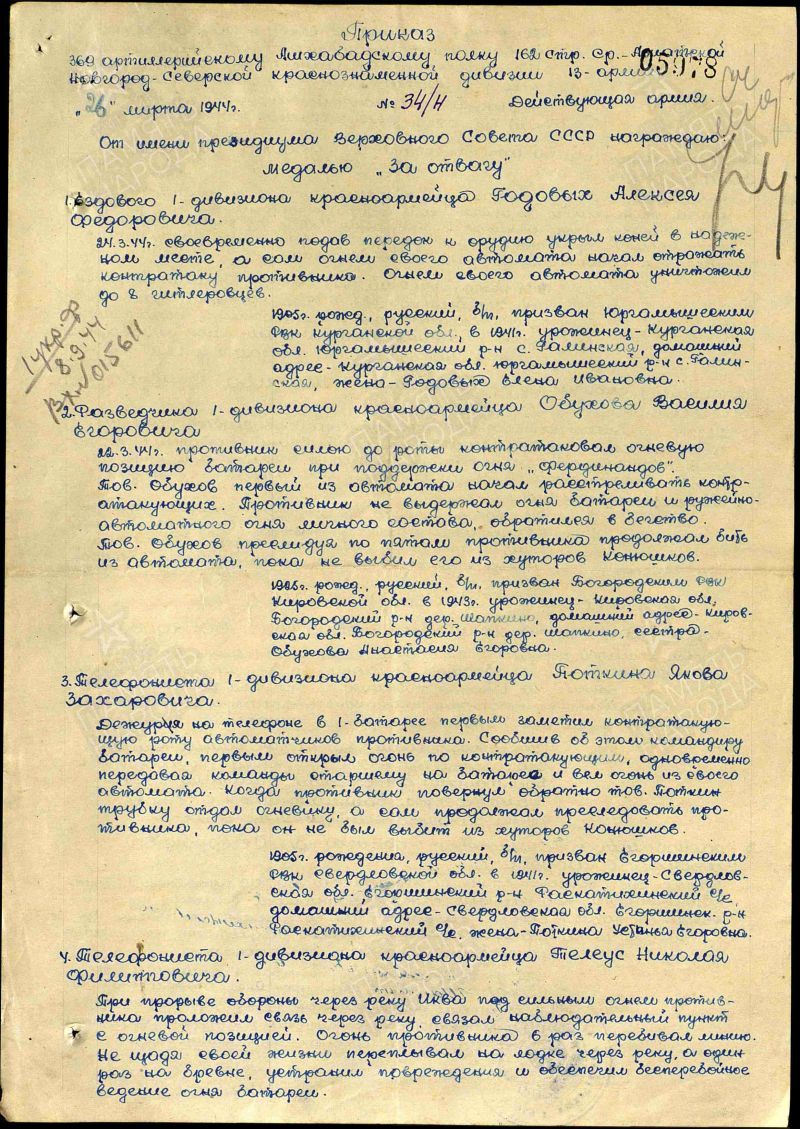 Приказ
369 артиллерийскому Ашхабадскому полку 162 стр. Ср.-Азиатской
Новгород-Северской краснознаменной дивизии 13-армии
05978
„26" марта 1944г. № 34/н Действующая армия.
От имени президиума Верховного Совета СССР награждаю:
Медалью „За отвагу"
1. Ездового 1-дивизиона красноармейца Годовых Алексея
Федоровича.
24.3.44г. своевременно подав передок к орудию укрыл коней в надеж-
ном месте, а сам огнем своего автомата начал отражать
контратаку противника. Огнем своего автомата уничтожил
до 8 гитлеровцев.
1905г. рожд., русский, б/п, призван Юргамышским
РВК Курганской обл., в 1941г. урожинец-Курганская
обл. Юргамышеский р-н с. Галинская, домашний
адрес-Курганская обл. Юргамышеский р-н с. Галин-
ская, жена-Годовых Елена Ивановна.
1 укр. ф
8.9.44
Вх№ 015611
2. Разведчика 1-дивизиона красноармейца Обухова Василия
Егоровича
22.3.44г. противник силою до роты контратаковал огневую
позицию батареи при поддержки огня „Фердинандов".
Тов. Обухов первый из автомата начал расстреливать контр-
атакующих. Противник не выдержал огня батареи и ружейно-
автоматного огня личного состава, обратился в бегство.
Тов. Обухов преследуя по пятам противника продолжал бить
из автомата, пока не выбил его из хуторов Конюшков.
1925г. рожд., русский, б/п, призван Богородским РВК
Кировской обл. в 1943г. урожинец-Кировская обл,
Богородский р-н дер. Шапкино, домашний адрес-Киров-
ская обл. Богородский р-н дер. Шапкино, сестра-
Обухова Анастасия Егоровна.
3. Телефониста 1-дивизиона красноармейца Поткина Якова
Захаровича.
Дежуря на телефоне в 1-батарее первым заметил контратакую-
щую роту автоматчиков противника. Сообщив об этом командиру
батареи, первым открыл огонь по контратакующим, одновременно
передавая команды старшему на батарее и вел огонь из своего
автомата. Когда противник повернул обратно тов. Поткин
трубку отдал огневику, а сам продолжал преследовать про-
тивника, пока он не был выбит из хуторов Конюшков.
1905г. рождения, русский, б/п, призван Егоршинским
РВК Свердловской обл. в 1941г. урожинец-Свердлов-
ская обл. Егоршинский р-н Раскатихинский с/с,
домашний адрес-Свердловская обл. Егоршинск. р-н
Раскатихинский с/с, жена-Поткина Устинья Егоровна.
4. Телефониста 1-дивизиона красноармейца Телеус Николая
Филипповича.
При прорыве обороны через реку Иква под сильным огнем против-
ника проложил связь через реку, связал наблюдательный пункт
с огневой позицией. Огонь противника 6 раз перебивал линию.
Не щадя своей жизни переплывал на лодке через реку, а один
раз на бревне, устранил повреждения и обеспечил бесперебойное
ведение огня батареи.
ПАМЯТЬ
НАРОДА